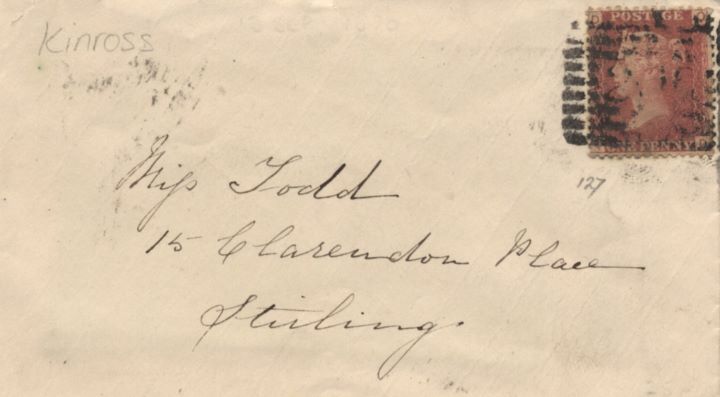 Kinross
POSTAGE
ONE PENNY
127
Miss Todd
15 Clarendon Place
Stirling.